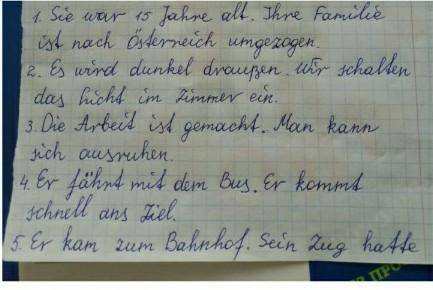 1. Sie war 15 Jahre alt. Ihre Familie
ist nach Österreich umgezogen.
2. Es wird dunkel draußen. Wir schalten
das Licht im Zimmer ein.
3. Die Arbeit ist gemacht. Man kann
sich ausruhen.
4. Er fährt mit dem Bus. Er kommt
schnell ans Ziel.
5. Er kam zum Bahnhof. Sein Zug hatte